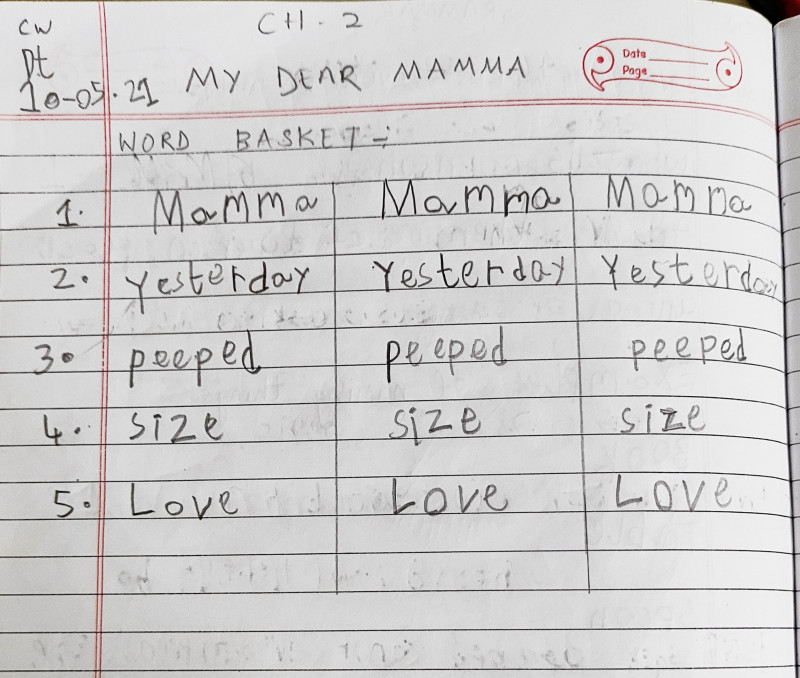 CW CH - 2
Dt
10-05-21 MY DEAR MAMMA
Date
Page
WORD BASKET -:
1. Mamma Mamma Mamma
2. Yesterday Yesterday Yesterday
3. peeped peeped peeped
4. size size size
5. Love Love Love